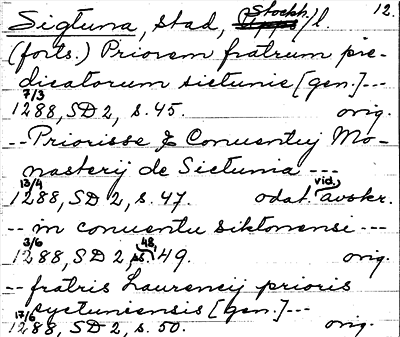 Sigtuna, stad, Stockh./l. 12.
(forts.) Priorem fratrum pre-
dicatorum sictunie [gen.]---
7/3
1288, SD 2, s. 45. orig.
-- Priorisse & Conuentuj Mo-
nasterij de Sictunia ---
13/4 vid.
1288, SD 2, s. 47. odat. avskr.
-- in conuentu siktonensi ---
3/6 48,
1288, SD 2, s. 49. orig.
-- fratris Laurencij prioris
syctuniensis [gen.]---
17/6
1288, SD 2, s. 50. orig.